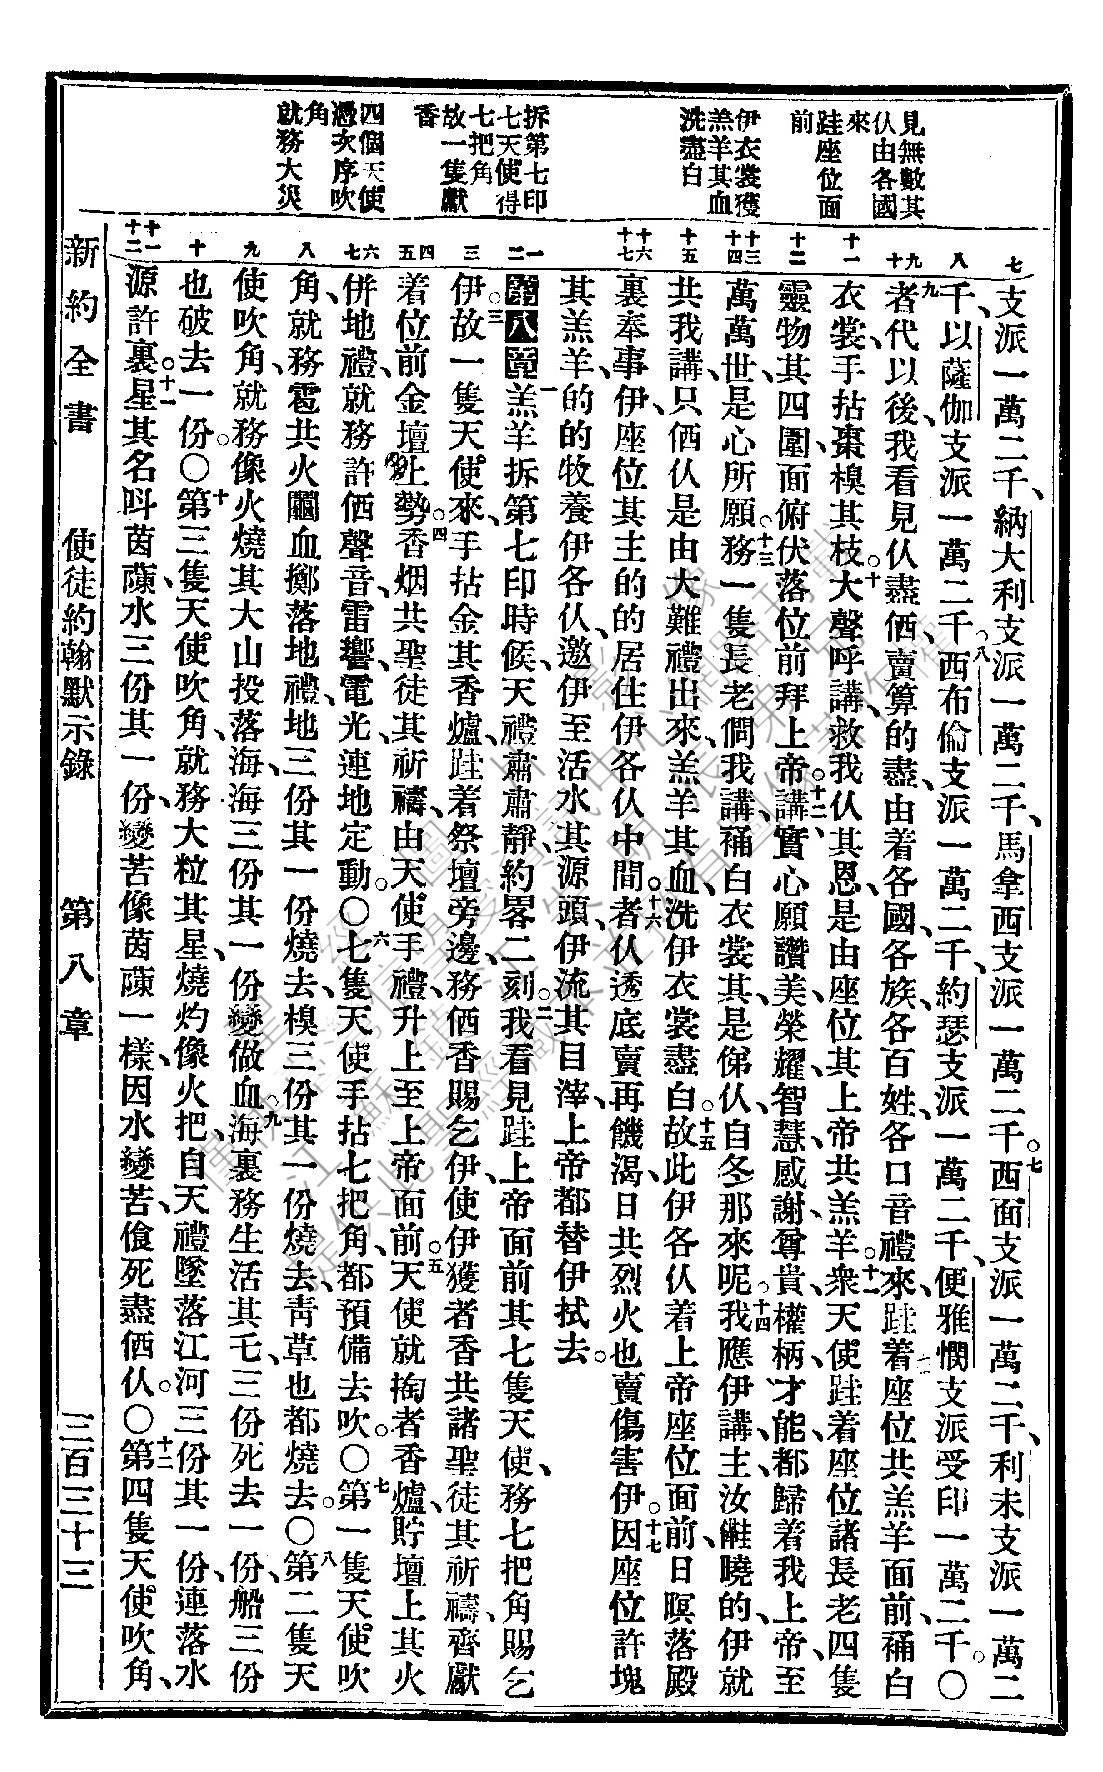 見無數其
仈由各國
來
跬座位面
前
伊衣裳獲
羔羊其血
洗盡白
拆第七印
七天使得
七把角
放一隻獻
香
四個天使
憑次序吹
角
就務大災
七
八
九
十
十一
十二
十三
十四
十五
十六
十七
一
二
三
四
五
六
七
八
九
十
十一
十二
支派一萬二千、納大利支派一萬二千、馬拿西支派一萬二千。七西面支派一萬二千、利未支派一萬二
千、以薩伽支派一萬二千。八西布倫支派一萬二千、約瑟支派一萬二千、便雅憫支派受印一萬二千。〇
九者代以後、我看見仈盡㒲賣算的盡、由着各國各族各百姓各口音禮來、跬着座位共羔羊面前、𧙕白
衣裳、手拈棗模其枝。十大聲呼講、救我仈其恩、是由座位其上帝共羔羊。十一衆天使跬着座位諸長老四隻
靈物其四圍、面俯伏落位前拜上帝。十二講、實心願讚美榮耀智慧感謝尊貴權柄才能、都歸着我上帝、至
萬萬世、是心所願。十三務一隻長老問我講、𧙕白衣裳其是俤仈、自冬那來呢。十四我應伊講、主、汝㒰曉的、伊就
共我講、只㒲仈是由大難禮出來、羔羊其血、洗伊衣裳盡白。十五故此伊各仈着上帝座位面前、日暝落殿
裏奉事伊、座位其主的的居住伊各仈中間。十六者仈透底賣再饑渴、日共烈火也賣傷害伊。十七因座位許塊
其羔羊、的的牧養伊各仈、邀伊至活水其源頭、伊流其目滓、上帝都替伊拭去。
第八章一羔羊拆第七印時候、天禮肅肅靜約畧二刻。二我看見跬上帝面前其七隻天使、務七把角賜乞
伊。三故一隻天使來、手拈金其香爐、跬着祭壇旁邊、務㒲香賜乞伊、使伊獲者香共諸聖徒其祈禱、齊獻
着位前金壇上勢。四香烟共聖徒其祈禱、由天使手禮、升上至上帝面前。五天使就掏者香爐、貯壇上其火
併地禮、就務許㒲聲音、雷響、電光、連地定動。〇六七隻天使手拈七把角、都預備去吹。〇七第一隻天使吹
角、就務雹共火𬮿血擲落地禮、地三份其一份燒去、模三份其一份燒去、青草也都燒去。〇八第二隻天
使吹角、就務像火燒其大山投落海、海三份其一份變做血。九海裏務生活其乇、三份死去一份、船三份
也破去一份。〇十第三隻天使吹角、就務大粒其星、燒灼像火把、自天禮墜落江河三份其一份、連落水
源許裏。十一星其名呌茵蔯、水三份其一份、變苦像茵蔯一樣、因水變苦、飡死盡㒲仈。〇十二第四隻天使吹角、
新約全書
使徒約翰默示錄
第八章
三百三十三